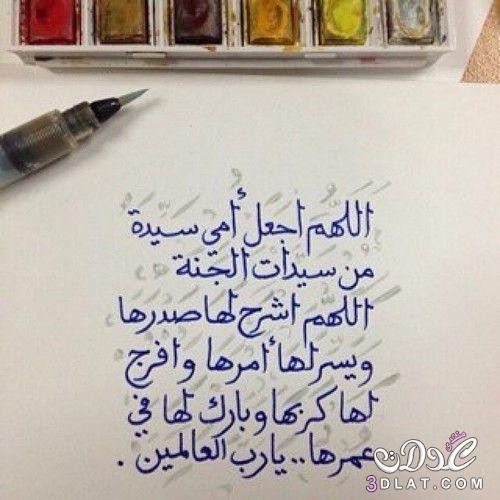 اللهم اجعل أمي سيدة
من سيدات الجنة
اللهم اشرح لها صدرها
ويسر لها أمرها وافرج
لها كربها وبارك لها في
عمرها.. يارب العالمين .
منتدى عدلات
3DLAT.COM